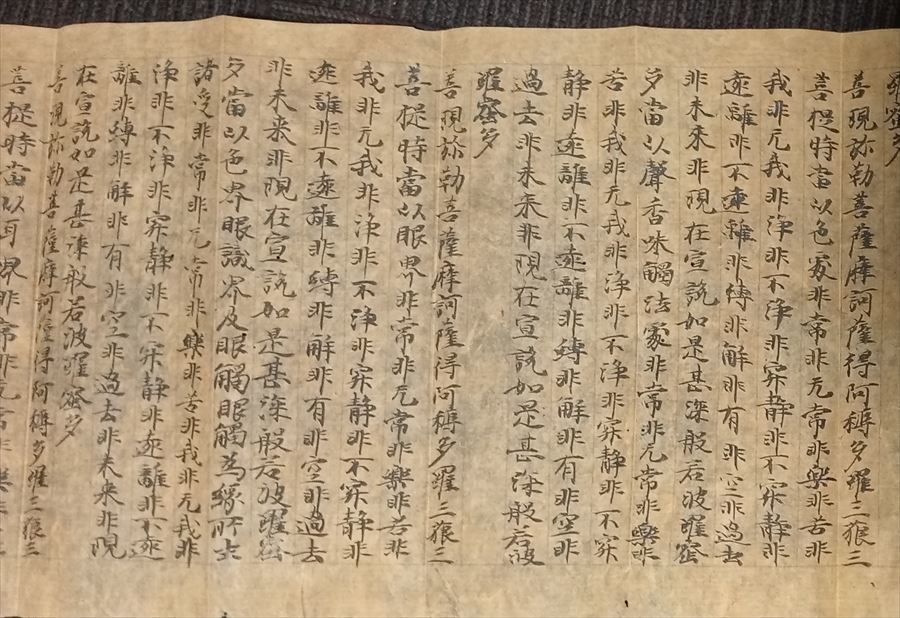 羅蜜多
善現弥勒菩薩摩訶薩得阿耨多羅三藐三
菩提時當以色處非常非无常非樂非苦非
我非无我非淨非不淨非寂静非不寂静非
遠離非不遠離非縛非解非有非空非過去
非未来非現在宣說如是甚深般若波羅蜜
多當以聲香味觸法處非常非无常非樂非
苦非我非无我非淨非不淨非寂静非不寂
静非遠離非不遠離非縛非解非有非空非
過去非未来非現在宣說如是甚深般若波
羅蜜多
善現弥勒菩薩摩訶薩得阿耨多羅三藐三
菩提時當以眼界非常非无常非樂非苦非
我非无我非淨非不淨非寂静非不寂静非
遠離非不遠離非縛非解非有非空非過去
非未来非現在宣說如是甚深般若波羅蜜
多當以色界眼識界及眼觸眼觸為縁所生
諸受非常非无常非樂非苦非我非无我非
淨非不淨非寂静非不寂静非遠離非不遠
離非縛非解非有非空非過去非未来非現
在宣說如是甚深般若波羅蜜多
善現弥勒菩薩摩訶薩得阿耨多羅三藐三
菩提時當以耳界非常非无常非樂非